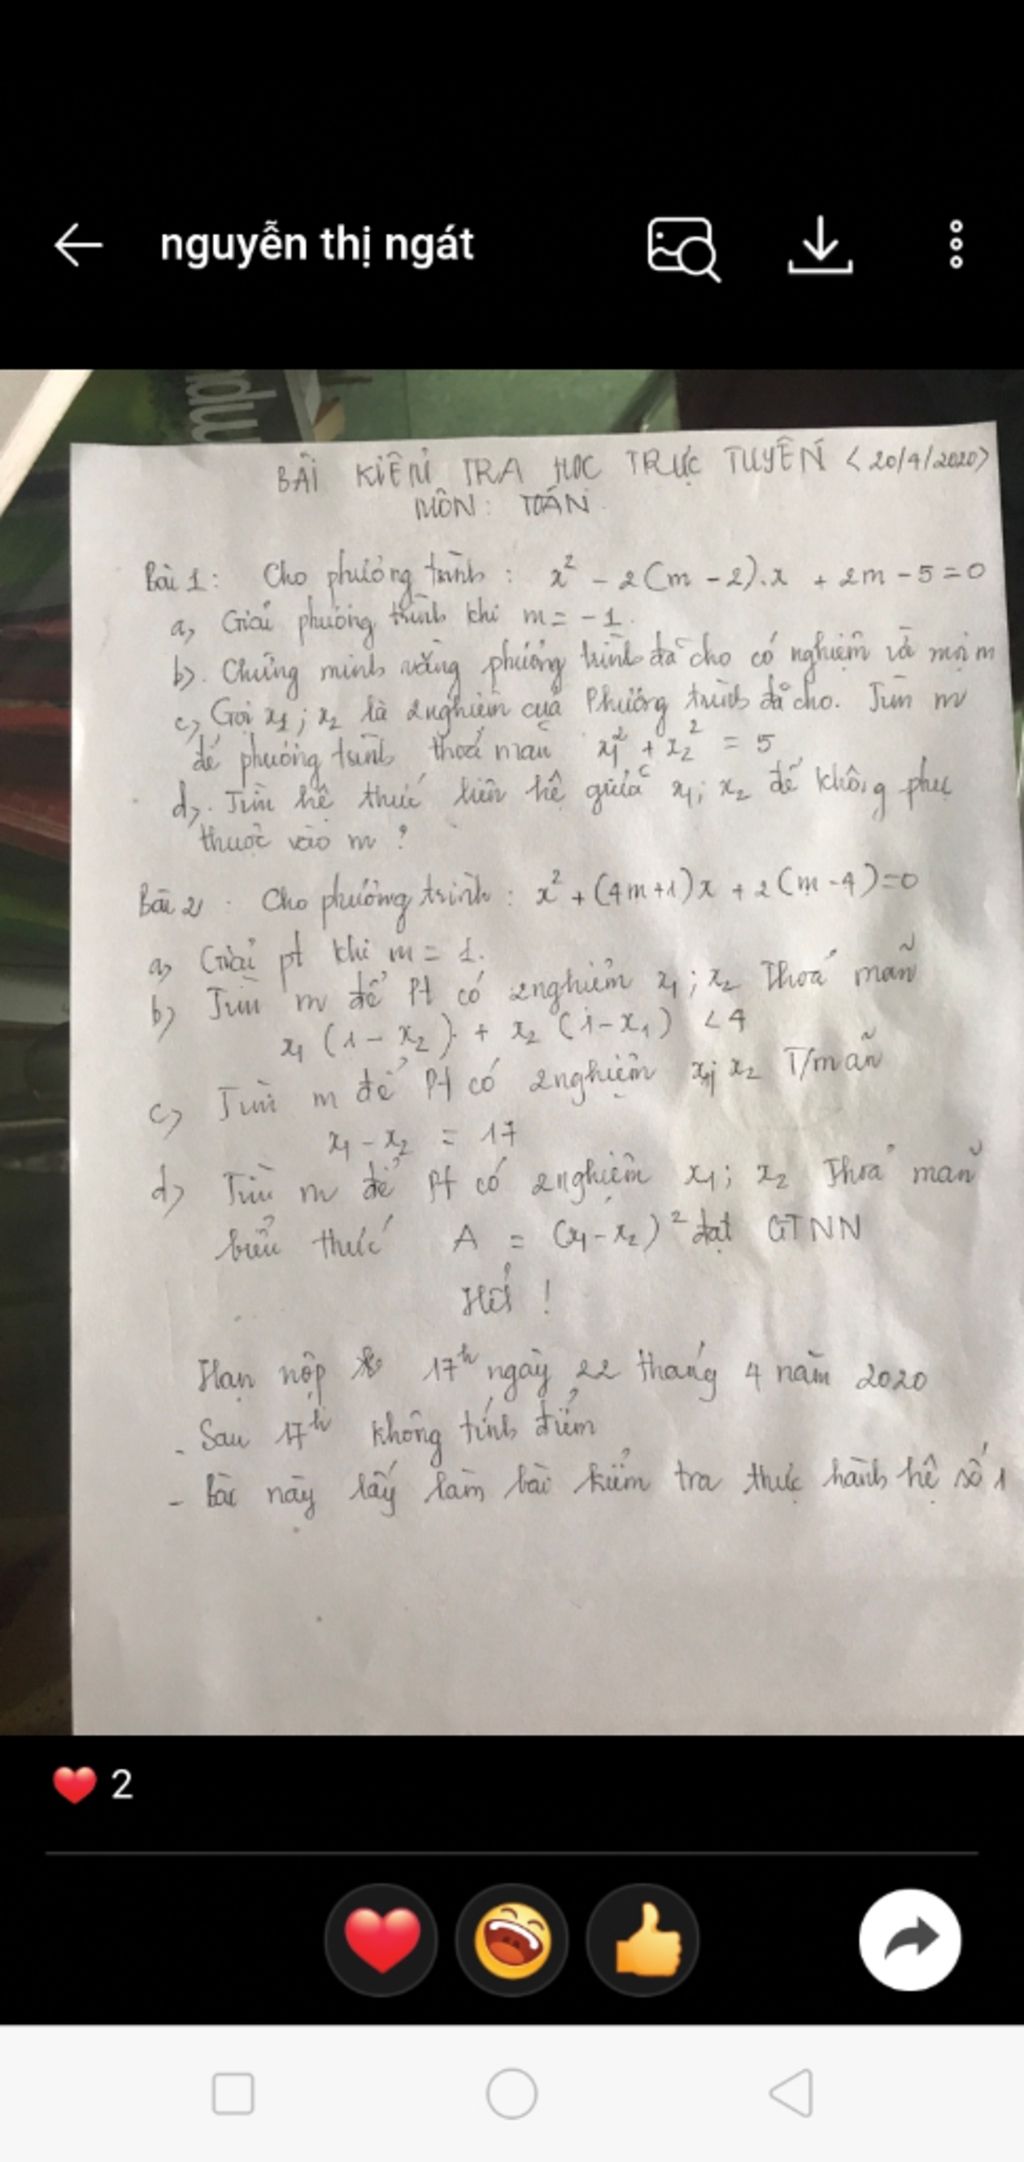 nguyễn thị ngát
BÀI KIỂM TRA HỌC TRỰC TUYẾN <20/4/2020>
MÔN: TOÁN
Bài 1: Cho phương trình: x² - 2(m-2).x + 2m-5=0
a, Giải phương trình khi m = -1.
b). Chứng minh rằng phương trình đã cho có nghiệm với mọi m
c, Gọi x₁; x₂ là 2 nghiệm của Phương trình đã cho. Tìm m
để phương trình thoả mãn x₁² + x₂² = 5
d,. Tìm hệ thức liên hệ giữa x₁; x₂ để không phụ
thuộc vào m?
Bài 2: Cho phương trình: x² + (4m+1)x + 2(m-4)=0
a, Giải pt khi m = 1.
b) Tìm m để Pt có 2 nghiệm x₁; x₂ Thoả mãn
x₁ (1-x₂) + x₂ (1-x₁) < 4
c, Tìm m để Pt có 2 nghiệm x₁; x₂ T/mãn
x₁ - x₂ = 17
d) Tìm m để Pt có 2 nghiệm x₁; x₂ Thoả mãn
biểu thức A = (x₁-x₂)² đạt GTNN
Hết!
Hạn nộp 17h ngày 22 tháng 4 năm 2020
- Sau 17h không tính điểm
- Bài này lấy làm bài kiểm tra thực hành hệ số 1
2